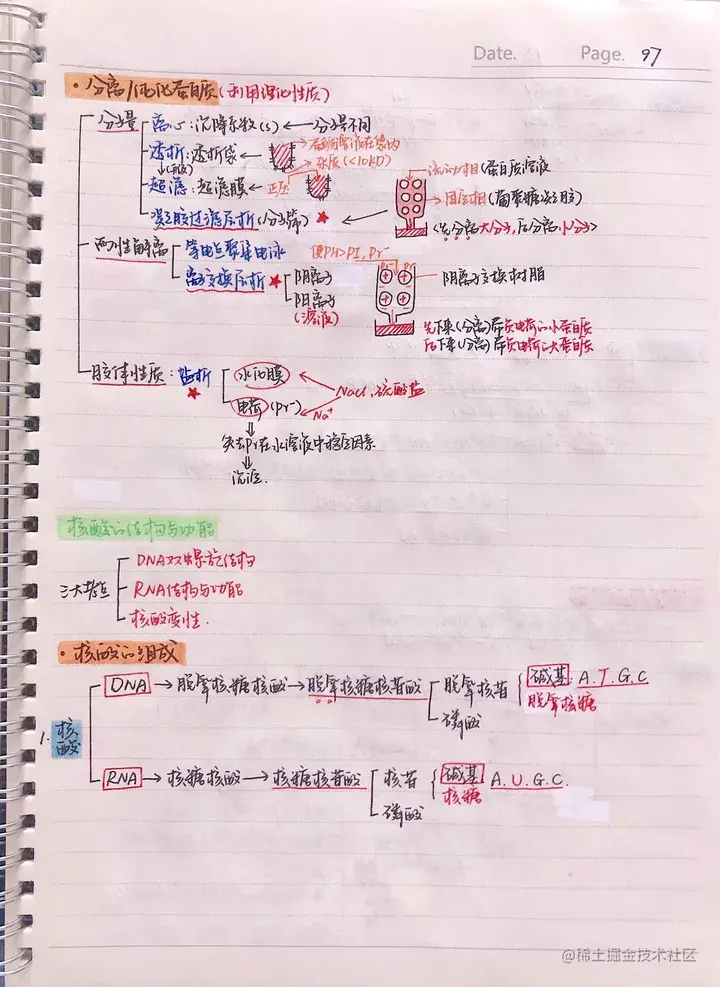 Date. Page. 97
·分离/纯化蛋白质(利用理化性质)
分子量
离心:沉降系数(S)←分子量不同
透析:透析袋←
蛋白溶液在袋内
灰质(<10KD)
超滤:超滤膜←正压
凝胶过滤层析(分子筛)★
流动相(蛋白质溶液
固定相(葡聚糖凝胶)
<先分离大分子,后分离小分子>
两性电离
等电点聚焦电泳
离子交换层析★
阴离子
阳离子
(溶液)
使PH>PI,Pr⁻
Pr⁻ Pr⁻
+ + + +
阴离子交换树脂
先下来(分离)带负电荷的小蛋白质
后下来(分离)带负电荷的大蛋白质
胶体性质:盐析★
水化膜
电荷(Pr⁻)
NaCl、硫酸盐
Na⁺
⇓
失去Pr在水溶液中稳定因素
⇓
沉淀.
核酸的结构与功能
三大考点
DNA双螺旋结构
RNA结构与功能
核酸变性.
·核酸的组成
1. 核酸
DNA→脱氧核糖核酸→脱氧核糖核苷酸
脱氧核苷
碱基:A.T.G.C
脱氧核糖
磷酸
RNA→核糖核酸→核糖核苷酸
核苷
碱基 A.U.G.C.
核糖
磷酸
@稀土掘金技术社区